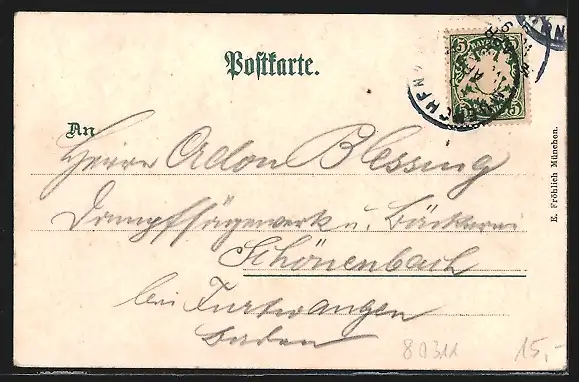 Postkarte.
An
Herrn Adon Blessing
Dampfsägewerk u. Bäckerei
Schönenbach
bei Furtwangen
Baden
E. Fröhlich München.
80311
15.-
5 5